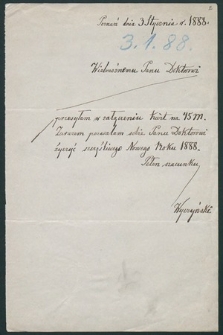 Poznań dnia 3 Stycznia r. 1888.
3.1.88.
Wielmożnemu Panu Doktorowi
przesyłam w załączeniu kwit na 75 m.
Zarazem pozwalam sobie Panu Doktorowi
życzyć szczęśliwego Nowego Roku 1888.
Pełen szacunku